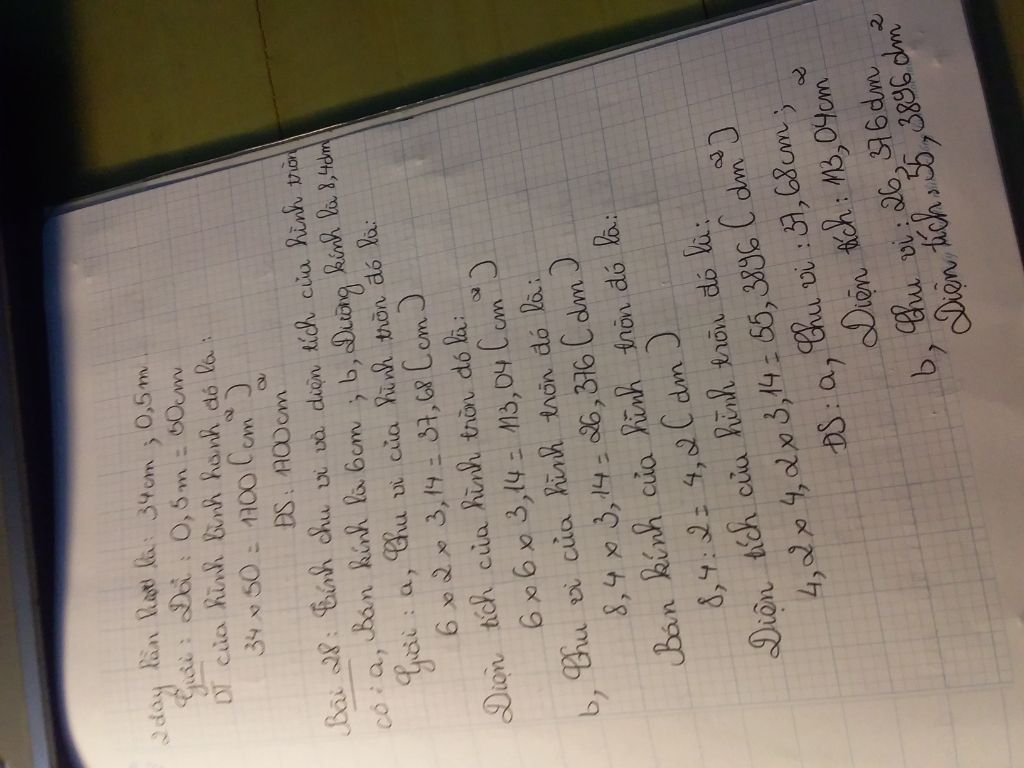 2 đáy lần lượt là: 34cm ; 0,5m
Giải: Đổi: 0,5m = 50cm
DT của hình bình hành đó là:
34 x 50 = 1700 (cm²)
ĐS: 1700cm²
Bài 28: Tính chu vi và diện tích của hình tròn
có: a, Bán kính là 6cm ; b, Đường kính là 8,4dm
Giải: a, Chu vi của hình tròn đó là:
6 x 2 x 3,14 = 37,68 (cm)
Diện tích của hình tròn đó là:
6 x 6 x 3,14 = 113,04 (cm²)
b, Chu vi của hình tròn đó là:
8,4 x 3,14 = 26,376 (dm)
Bán kính của hình tròn đó là:
8,4 : 2 = 4,2 (dm)
Diện tích của hình tròn đó là:
4,2 x 4,2 x 3,14 = 55,3896 (dm²)
ĐS: a, Chu vi: 37,68cm;
Diện tích: 113,04cm²
b, Chu vi: 26,376dm
Diện tích: 55,3896dm²